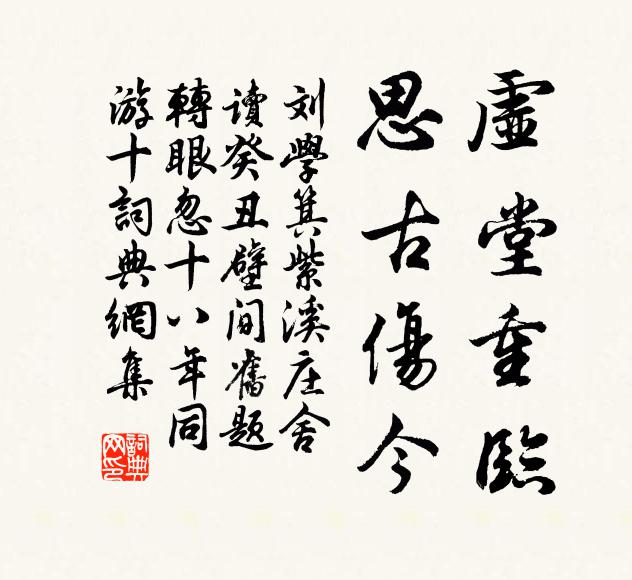 虛堂重臨
思古傷今
刘學箕紫溪庄舍
讀癸丑壁间舊题
轉眼忽十八年同
游十詞典網集
詞典网印